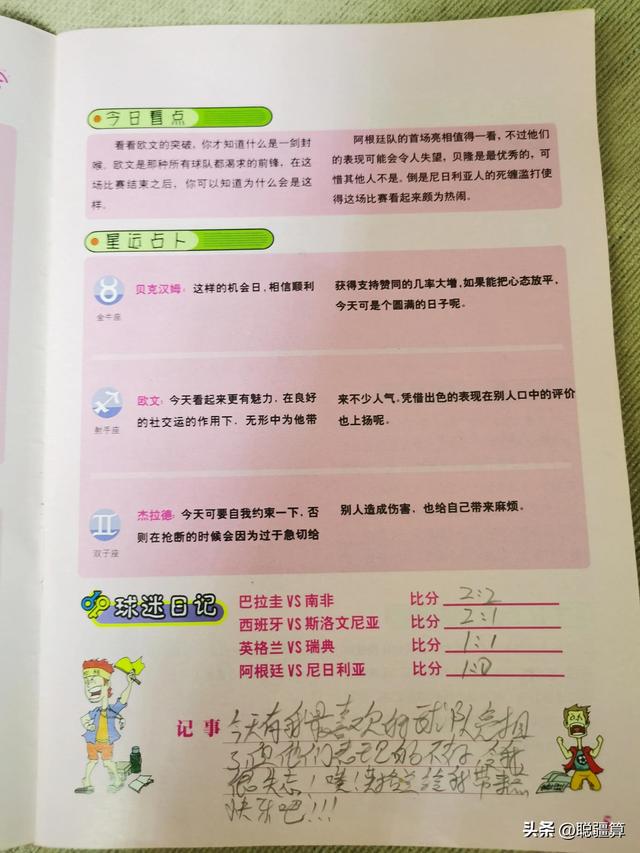 今日看点
看看欧文的突破，你才知道什么是一剑封
喉。欧文是那种所有球队都渴求的前锋，在这
场比赛结束之后，你可以知道为什么会是这
样。
阿根廷队的首场亮相值得一看，不过他们
的表现可能会令人失望，贝隆是最优秀的，可
惜其他人不是。倒是尼日利亚人的死缠滥打使
得这场比赛看起来颇为热闹。
星运占卜
金牛座
贝克汉姆：这样的机会日，相信顺利
获得支持赞同的几率大增，如果能把心态放平，
今天可是个圆满的日子呢。
射手座
欧文：今天看起来更有魅力，在良好
的社交运的作用下，无形中为他带
来不少人气。凭借出色的表现在别人口中的评价
也上扬呢。
双子座
杰拉德：今天可要自我约束一下，否
则在抢断的时候会因为过于急切给
别人造成伤害，也给自己带来麻烦。
球迷日记
巴拉圭 VS 南非 比分 2:2
西班牙 VS 斯洛文尼亚 比分 2:1
英格兰 VS 瑞典 比分 1:1
阿根廷 VS 尼日利亚 比分 1:0
记事 今天有我最喜欢的球队亮相
了，但他们 的不好 令我
很失志！噗！ 给我带来
快乐吧!!!
5
头条 @聪疆算